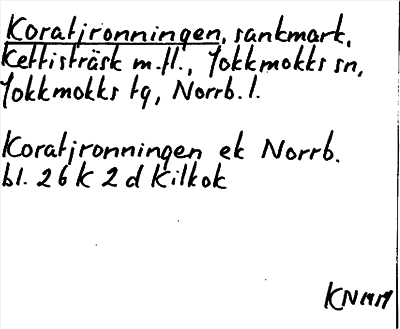 Koratjronningen, sankmark,
Kettisträsk m.fl., Jokkmokks sn,
Jokkmokks tg, Norrb. l.
Koratjronningen ek Norrb.
bl. 26 K 2 d Kilkok